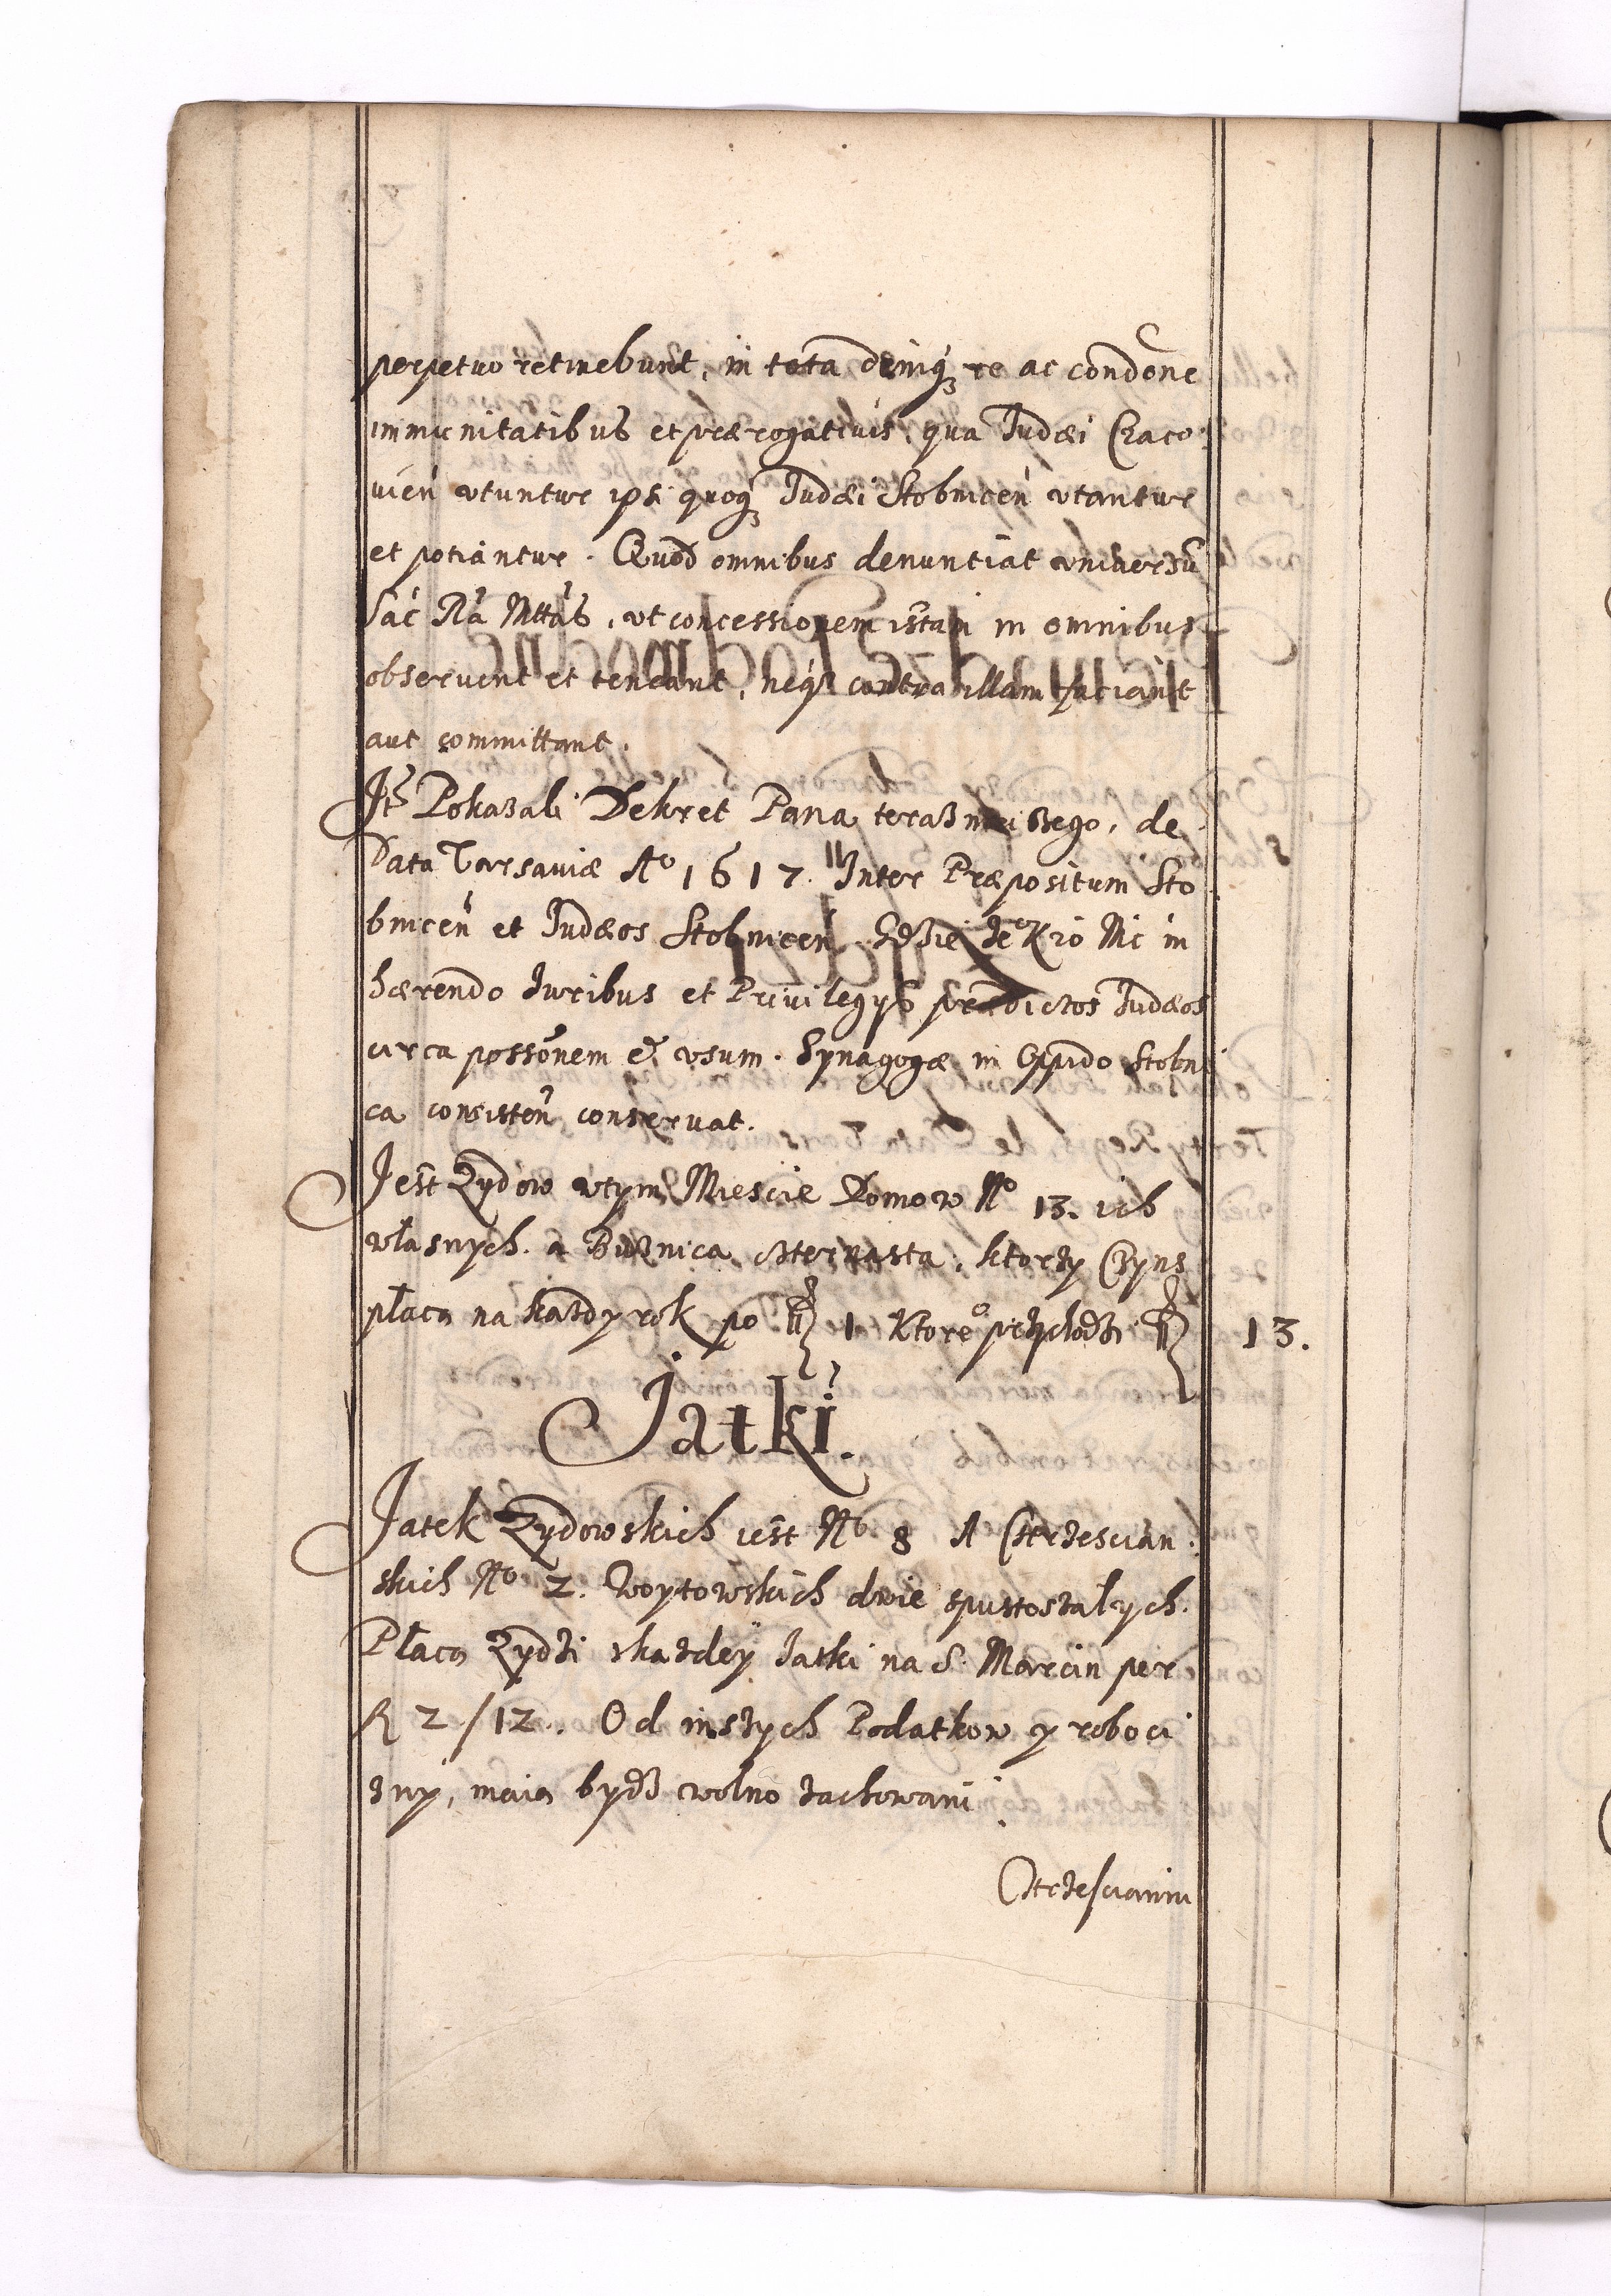 perpetuo retinebunt, in tota deniq3 re ac condõne
immunitatibus et prærogatiuis, qua Judæi Craco
uień vtuntur ipsi quoq3 Judæi Stobniceń vtantur
et potiantur. Quod omnibus denuntiat vniuersū
Sać Ra Mttas, vt concessionem istam in omnibus
obseruent et teneant, neq3 contra illam faciant
aut committant.
Jt Pokazali Dekret Pana terazniejszego, de
Data Varsauiæ Ao 1617. Inter Præpositum Sto
bniceń et Judæos Stobniceń. Gdzie Je° Kro Mć in
hærendo Iuribus et Privilegys prædictos Judæos
circa possõnem et vsum Synagogæ in Oppido Stobni
ca consisteń conseruat.
Jest Zydow wtym Miescie Domow No 13. ich
własnych. a Buznica czternasta, ktorzy Czyns
płacą na kazdy rok po fl 1 Ktore° przychodzi fl 13.
Jatki.
Jatek Zydowskich iest No 8 A Chrzescian
skich No 2. Woytowskich dwie spustoszałych.
Płacą Zydzi zkazdey Jatki na S. Marcin per
fl 2/12. Od inszych Podatkow y roboci
zny, maią bydz wolno zachowani.
Chrzescianin